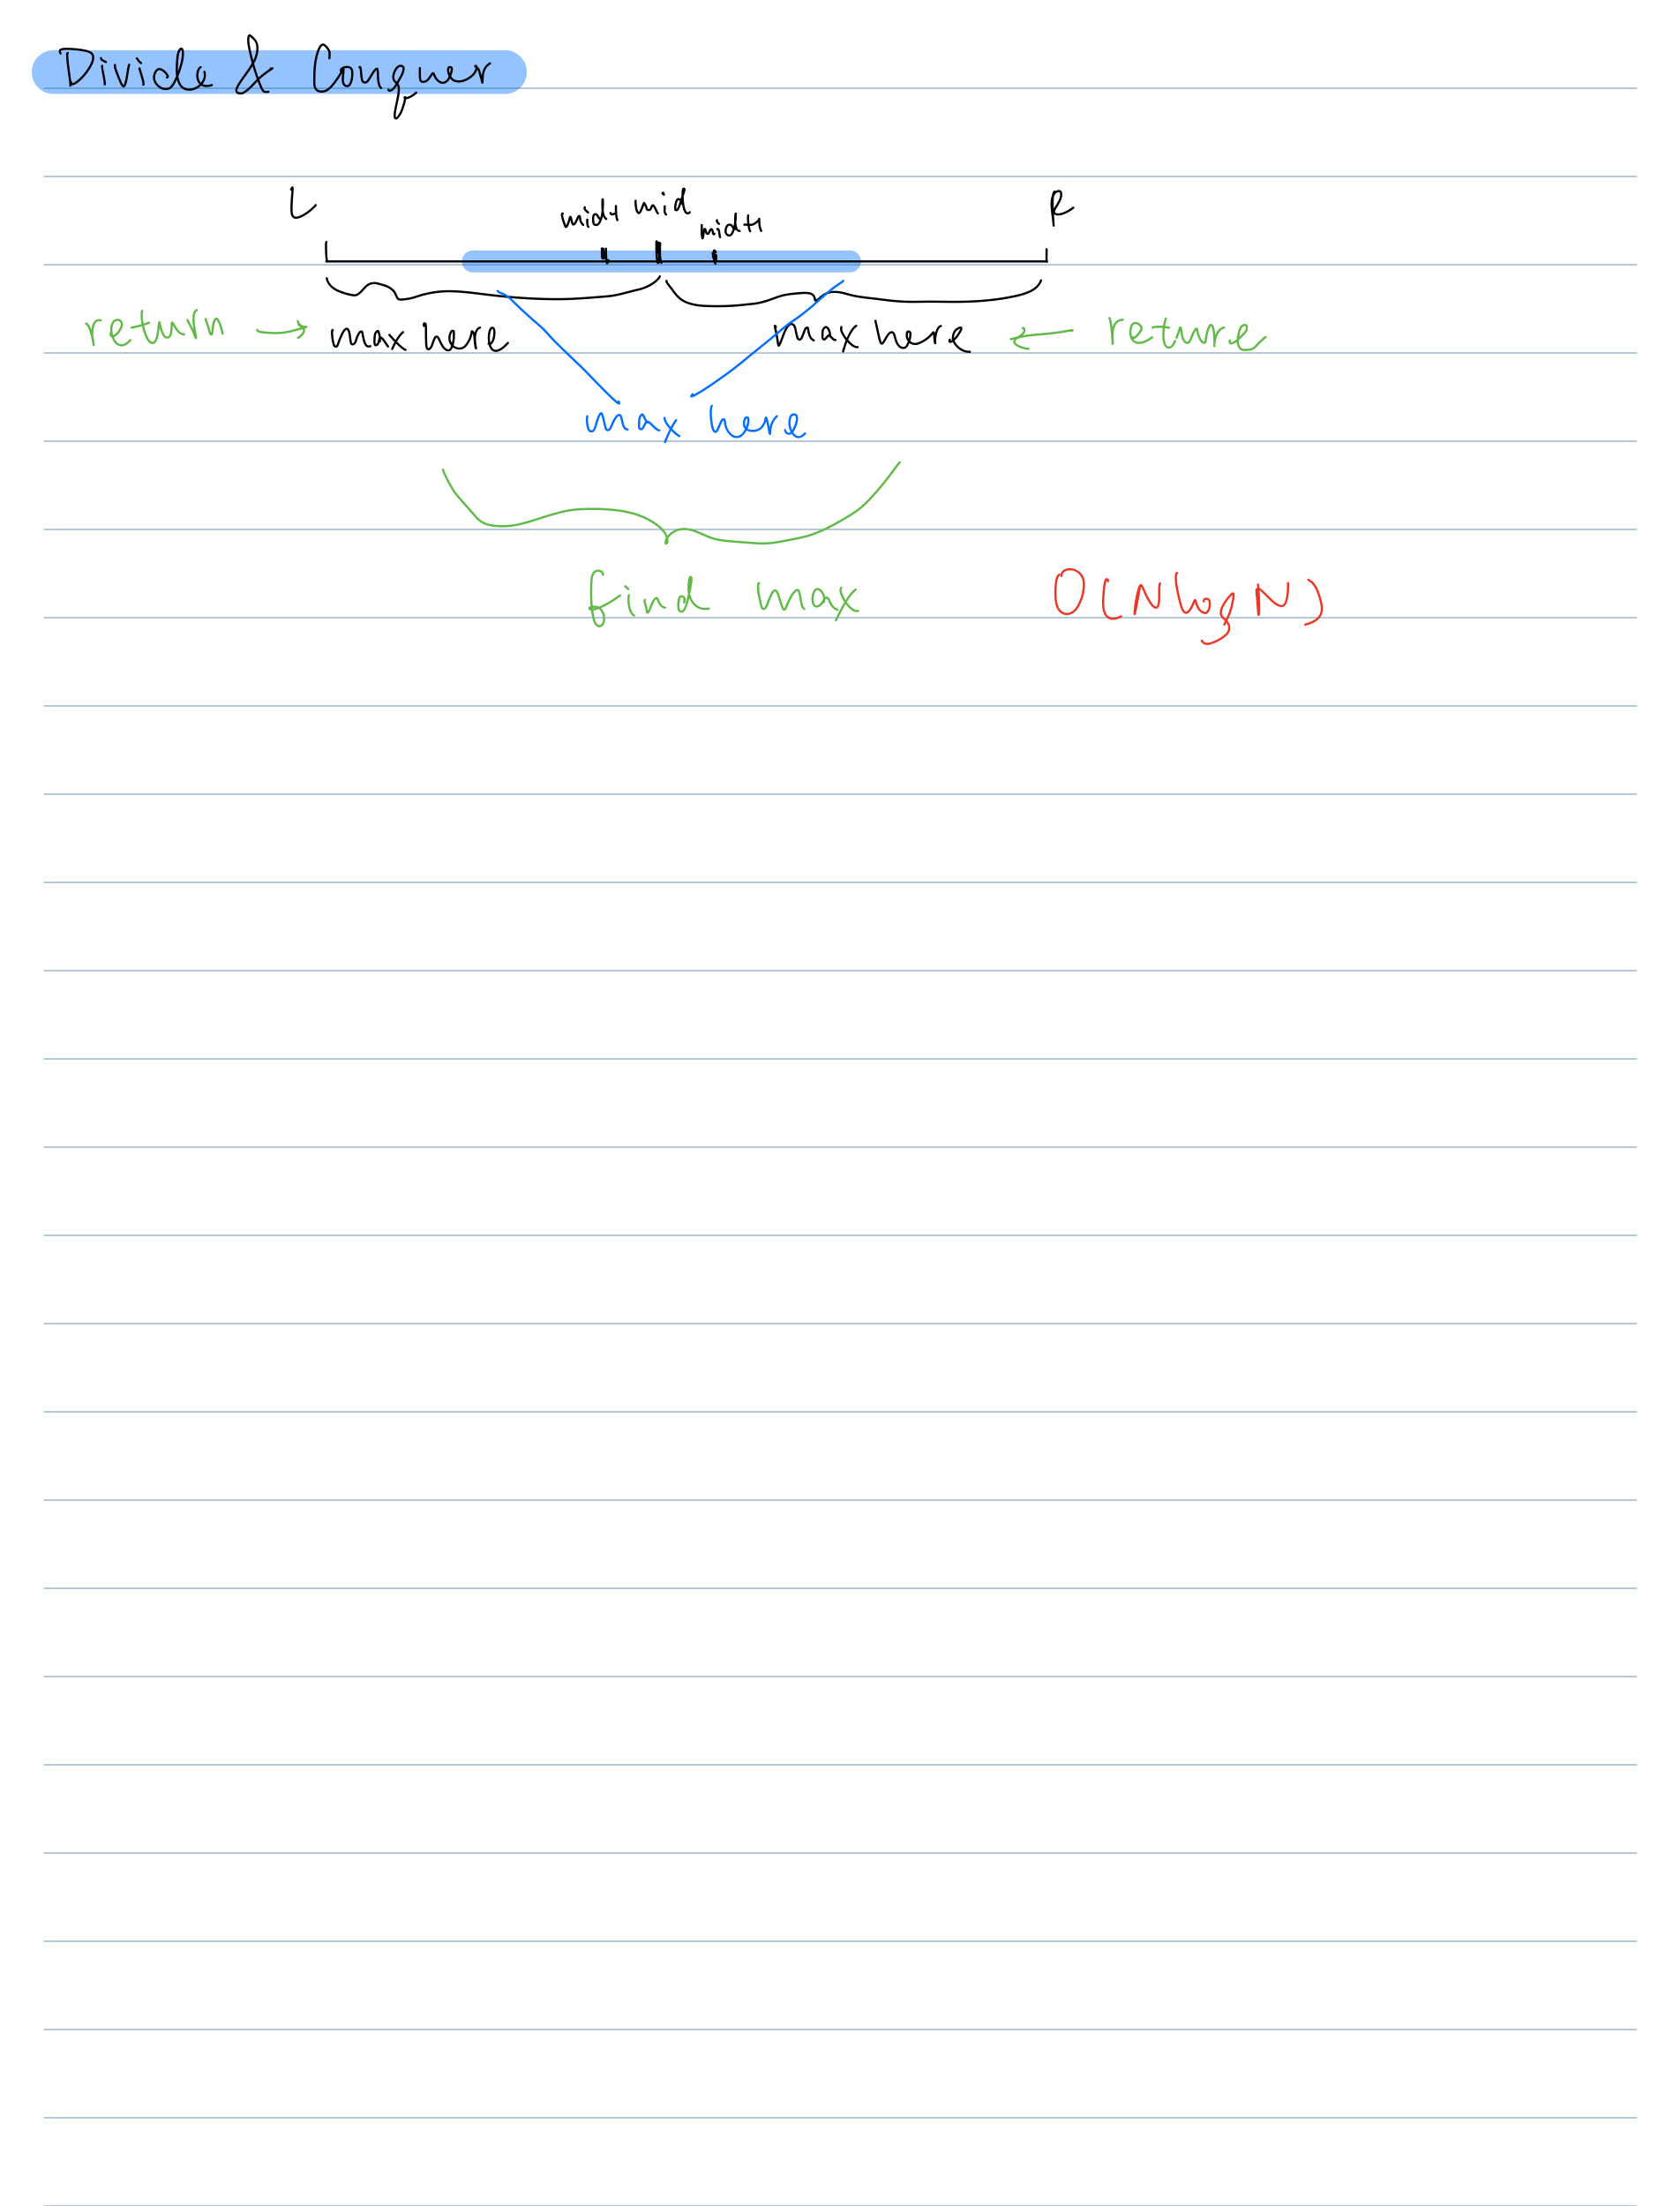 Divide & Conquer
L mid-1 mid mid+1 R
return → max here max here ← return
max here
find max O(N log N)